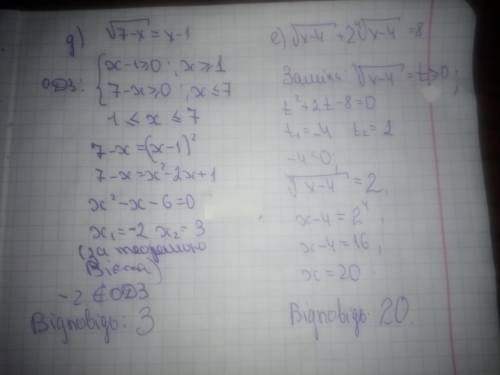 д) √7-x = x-1
ОДЗ: { x-1≥0; x≥1
7-x≥0; x≤7
1 ≤ x ≤ 7
7-x = (x-1)²
7-x = x²-2x+1
x²-x-6=0
x₁=-2 x₂=3
(за теоремою
Вієта)
-2 ∉ ОДЗ
Відповідь: 3
е) √x-4 + 2⁴√x-4 = 8
Заміна ⁴√x-4 = t≥0;
t²+2t-8=0
t₁=-4 t₂=2
-4<0;
⁴√x-4 = 2,
x-4=2⁴,
x-4=16,
x=20
Відповідь: 20.